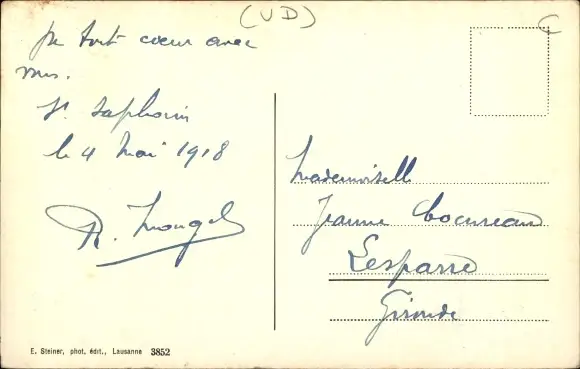 (VD)
C
De tout cœur avec
vous.
St. Saphorin
le 4 Mai 1918
R. Mongel
Mademoiselle
Jeanne
Lesparre
Gironde
E. Steiner, phot. édit., Lausanne 3852